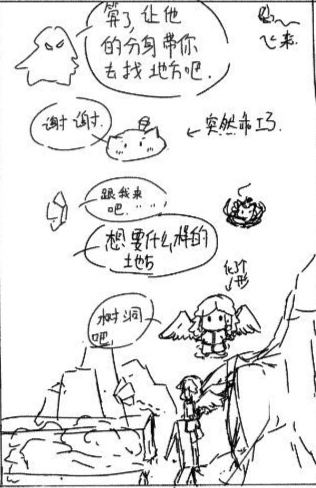 算了,让他
的分身带你
去找地方吧.
飞来.
谢谢.
← 突然乖巧.
跟我来
吧......
想要什么样的
地方
化了个
形
树洞
吧